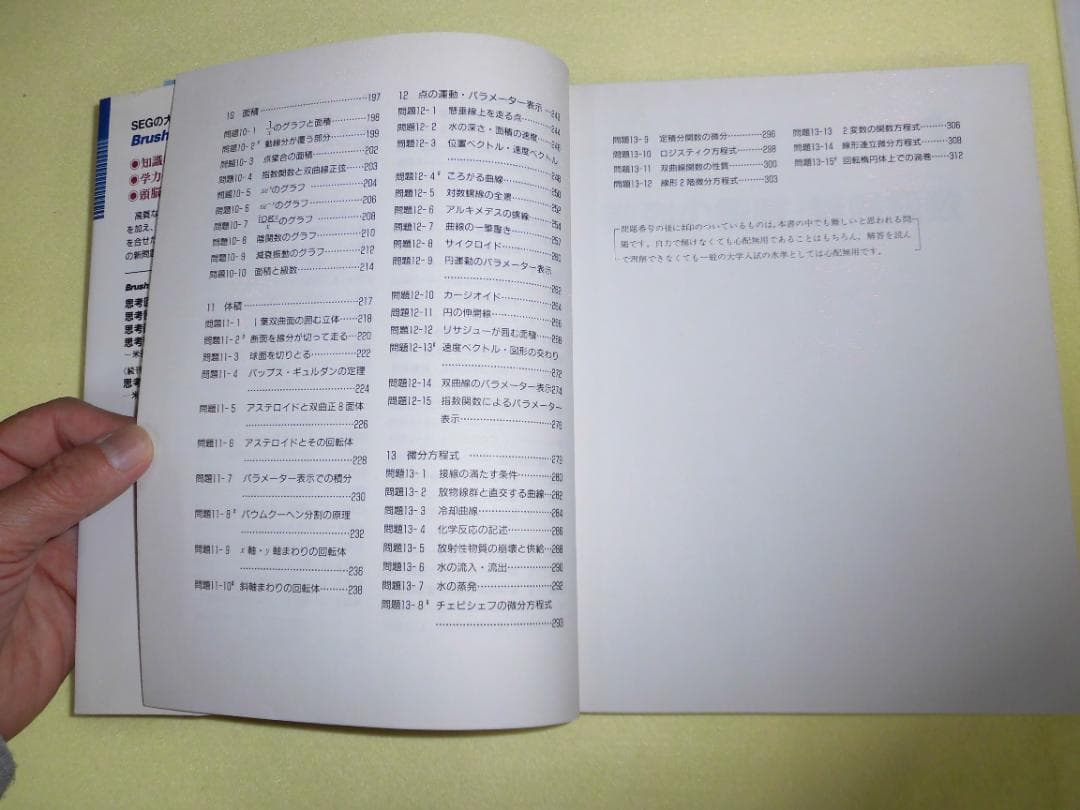 SEGの大
Brush
●知識
●学力
●頭脳
を加え、
を合せ
の新問題
Brush
10 面積……197
問題10-1 1/xのグラフと面積……198
問題10-2# 動線分が覆う部分……199
問題10-3 点集合の面積……202
問題10-4 指数関数と双曲線正弦……203
問題10-5 のグラフ……204
問題10-6 のグラフ……206
問題10-7 のグラフ……208
問題10-8 陰関数のグラフ……210
問題10-9 減衰振動のグラフ……212
問題10-10 面積と級数……214
11 体積……217
問題11-1 1葉双曲面の囲む立体……218
問題11-2# 断面を線分が切って走る…220
問題11-3 球面を切りとる……222
問題11-4 パップス・ギュルダンの定理
……224
問題11-5 アステロイドと双曲正8面体
……226
問題11-6 アステロイドとその回転体
……228
問題11-7 パラメーター表示での積分
……230
問題11-8# バウムクーヘン分割の原理
……232
問題11-9 x軸・y軸まわりの回転体
……236
問題11-10# 斜軸まわりの回転体……238
12 点の運動・パラメーター表示…241
問題12-1 懸垂線上を走る点……243
問題12-2 水の深さ・面積の速度……
問題12-3 位置ベクトル・速度ベクトル
……248
問題12-4# ころがる曲線……250
問題12-5 対数螺線の全書……252
問題12-6 アルキメデスの螺線……254
問題12-7 曲線の一筆書き……257
問題12-8 サイクロイド……260
問題12-9 円運動のパラメーター表示
……262
問題12-10 カージオイド……264
問題12-11 円の伸開線……266
問題12-12 リサジューが囲む面積……268
問題12-13# 速度ベクトル・図形の交わり
……272
問題12-14 双曲線のパラメーター表示274
問題12-15 指数関数によるパラメーター
表示……276
13 微分方程式……279
問題13-1 接線の満たす条件……280
問題13-2 放物線群と直交する曲線…282
問題13-3 冷却曲線……284
問題13-4 化学反応の記述……286
問題13-5 放射性物質の崩壊と供給…288
問題13-6 水の流入・流出……290
問題13-7 水の蒸発……292
問題13-8# チェビシェフの微分方程式
……293
問題13-9 定積分関数の微分……296
問題13-10 ロジスティク方程式……298
問題13-11 双曲線関数の性質……300
問題13-12 線形2階微分方程式……303
問題13-13 2変数の関数方程式……306
問題13-14 線形連立微分方程式……308
問題13-15# 回転楕円体上での渦巻……312
問題番号の後に#印のついているものは、本書の中でも難しいと思われる問
題です。自力で解けなくても心配無用であることはもちろん、解答を読ん
で理解できなくても一般の大学入試の水準としては心配無用です。